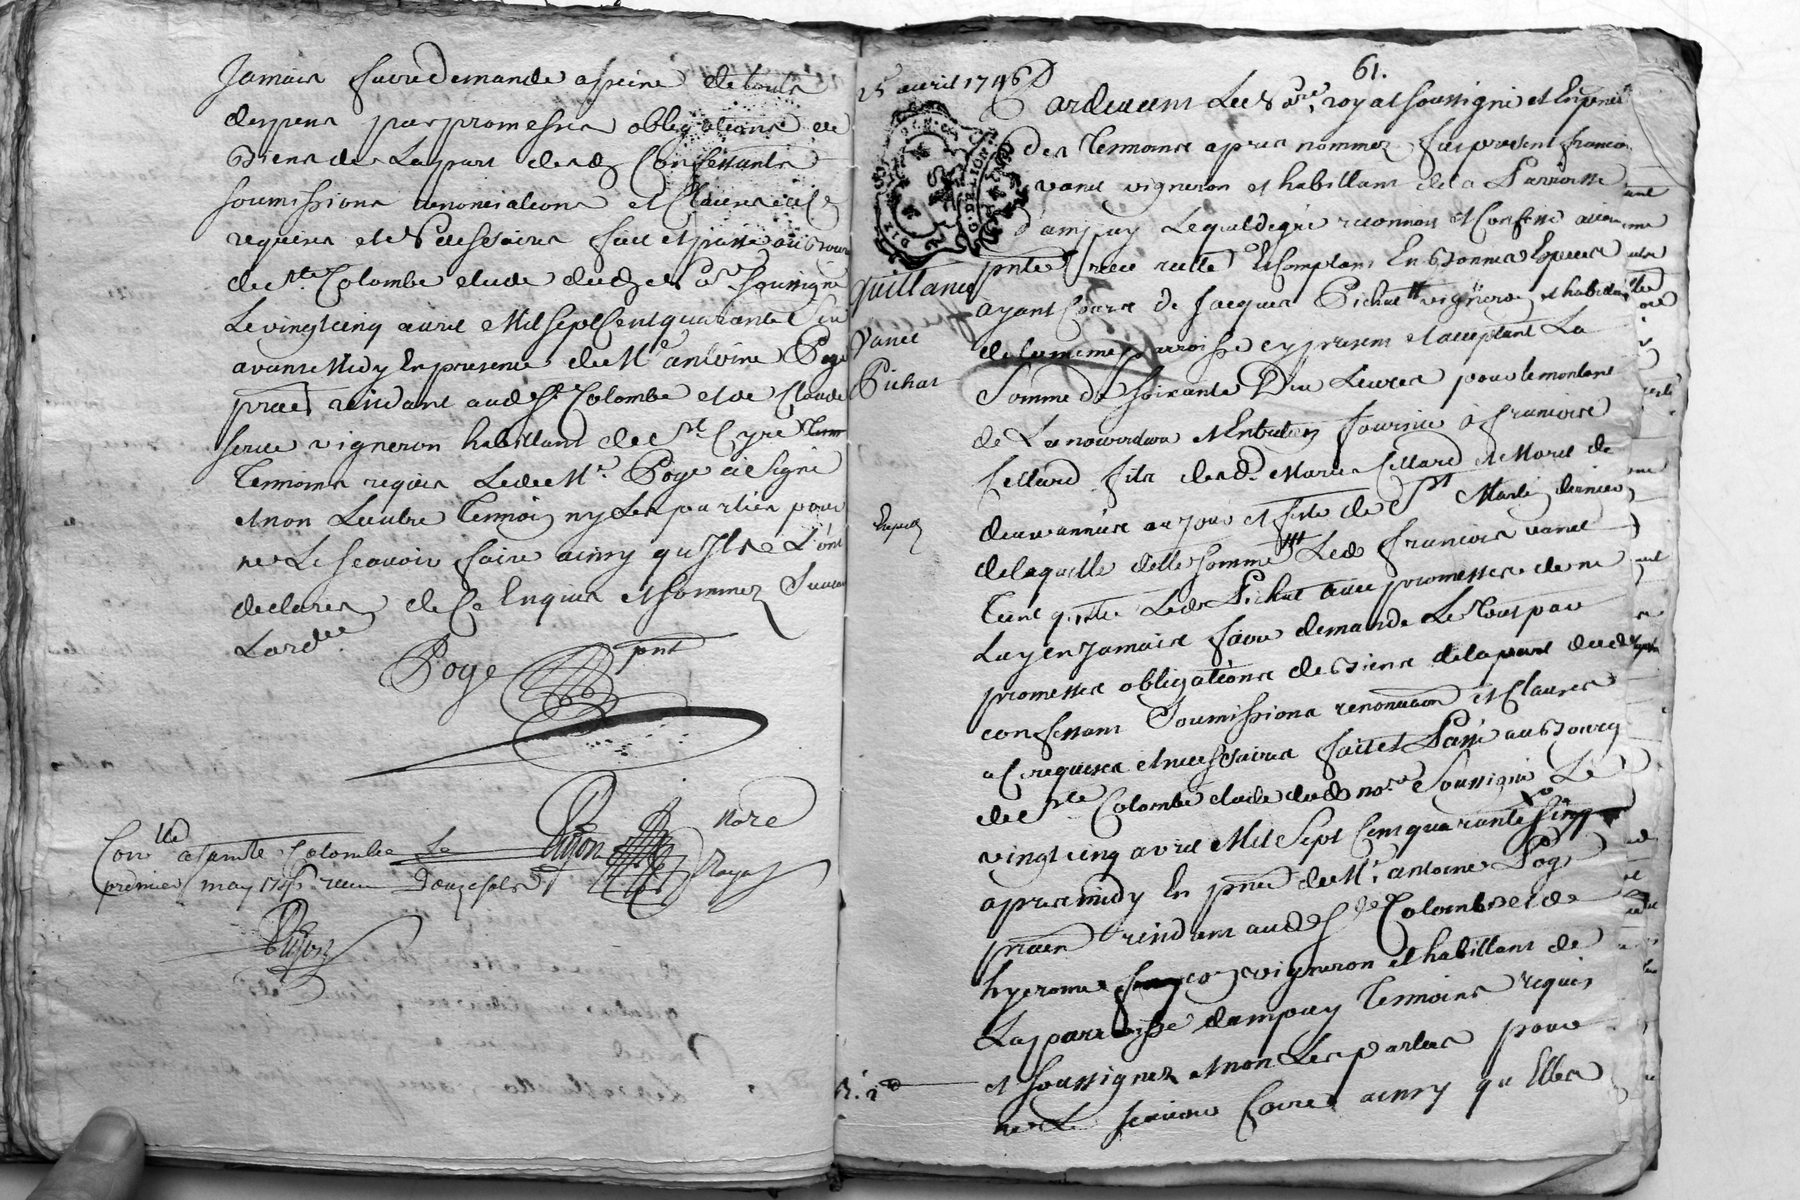 Jamais faire demande a peine de touts
despens par promesses obligations de
Biens de La part desd Confessants
soumissions renonciations et Clauses a ce
requises et necessaires fait et passé au Bourg
de Ste Colombe etude dud no.re soussigné
Le vingt cinq avril Mil sept Cent quarante six
avant Midy En presence de Me antoine Poge
pratn residant aud St Colombe et de Claude
vigneron habittant de St Cyre
Temoins requis Led Me Poge a signé
et non Lautre Temoin ny Les parties pour
ne Le scavoir faire ainsy qu'Ils L'ont
declarez de Ce Enquis et sommez Suivant
Lordce
Poge pnt
Con.llé a sainte Colombe Le
premier may 1746 receu Douze sols
Dujon Nore
Royal
Dujon
61.
25 avril 1746
Pardevant Le No.re royal soussigné et En presence
des Temoins apres nommez fut present francois
vanet vigneron et habittant de La Parroisse
d'ampuy Lequel de gré reconnoit et Confesse avoir
pnte receu Et Comptant En Bonnes Especes
Quittance
ayant Cours de Jacques Pichat vigneron et habitant
Vanet
de La meme parroisse cy present et acceptant La
Pichat
Somme de soixante Dix Livres pour le montant
de La nourriture et Entretien fournie à francoise
Cellard fils desd. Marie Cellard et Morel de
deux années au jour et feste de St Martin dernier
Expedié
de laquelle dette somme Led francois vanet
Tient quitte Led Pichat avec promesses de ne
Luy en Jamais faire demande Le Tout par
promesses obligations de Biens de la part dud
confessant Soumissions renonciation et Clauses
a Ce requises et necessaires fait et Passé au Bourg
de Ste Colombe etude dud no.re Soussigné Le
vingt cinq avril Mil Sept Cent quarante
apres midy En pnce de Me antoine Poge
praticn residant aud Ste Colombe et de
hyerome vigneron et habittant de
La parroisse dampuy Temoins requis
et soussignez et non Les parties pour
ne Le scavoir faire ainsy qu Elles